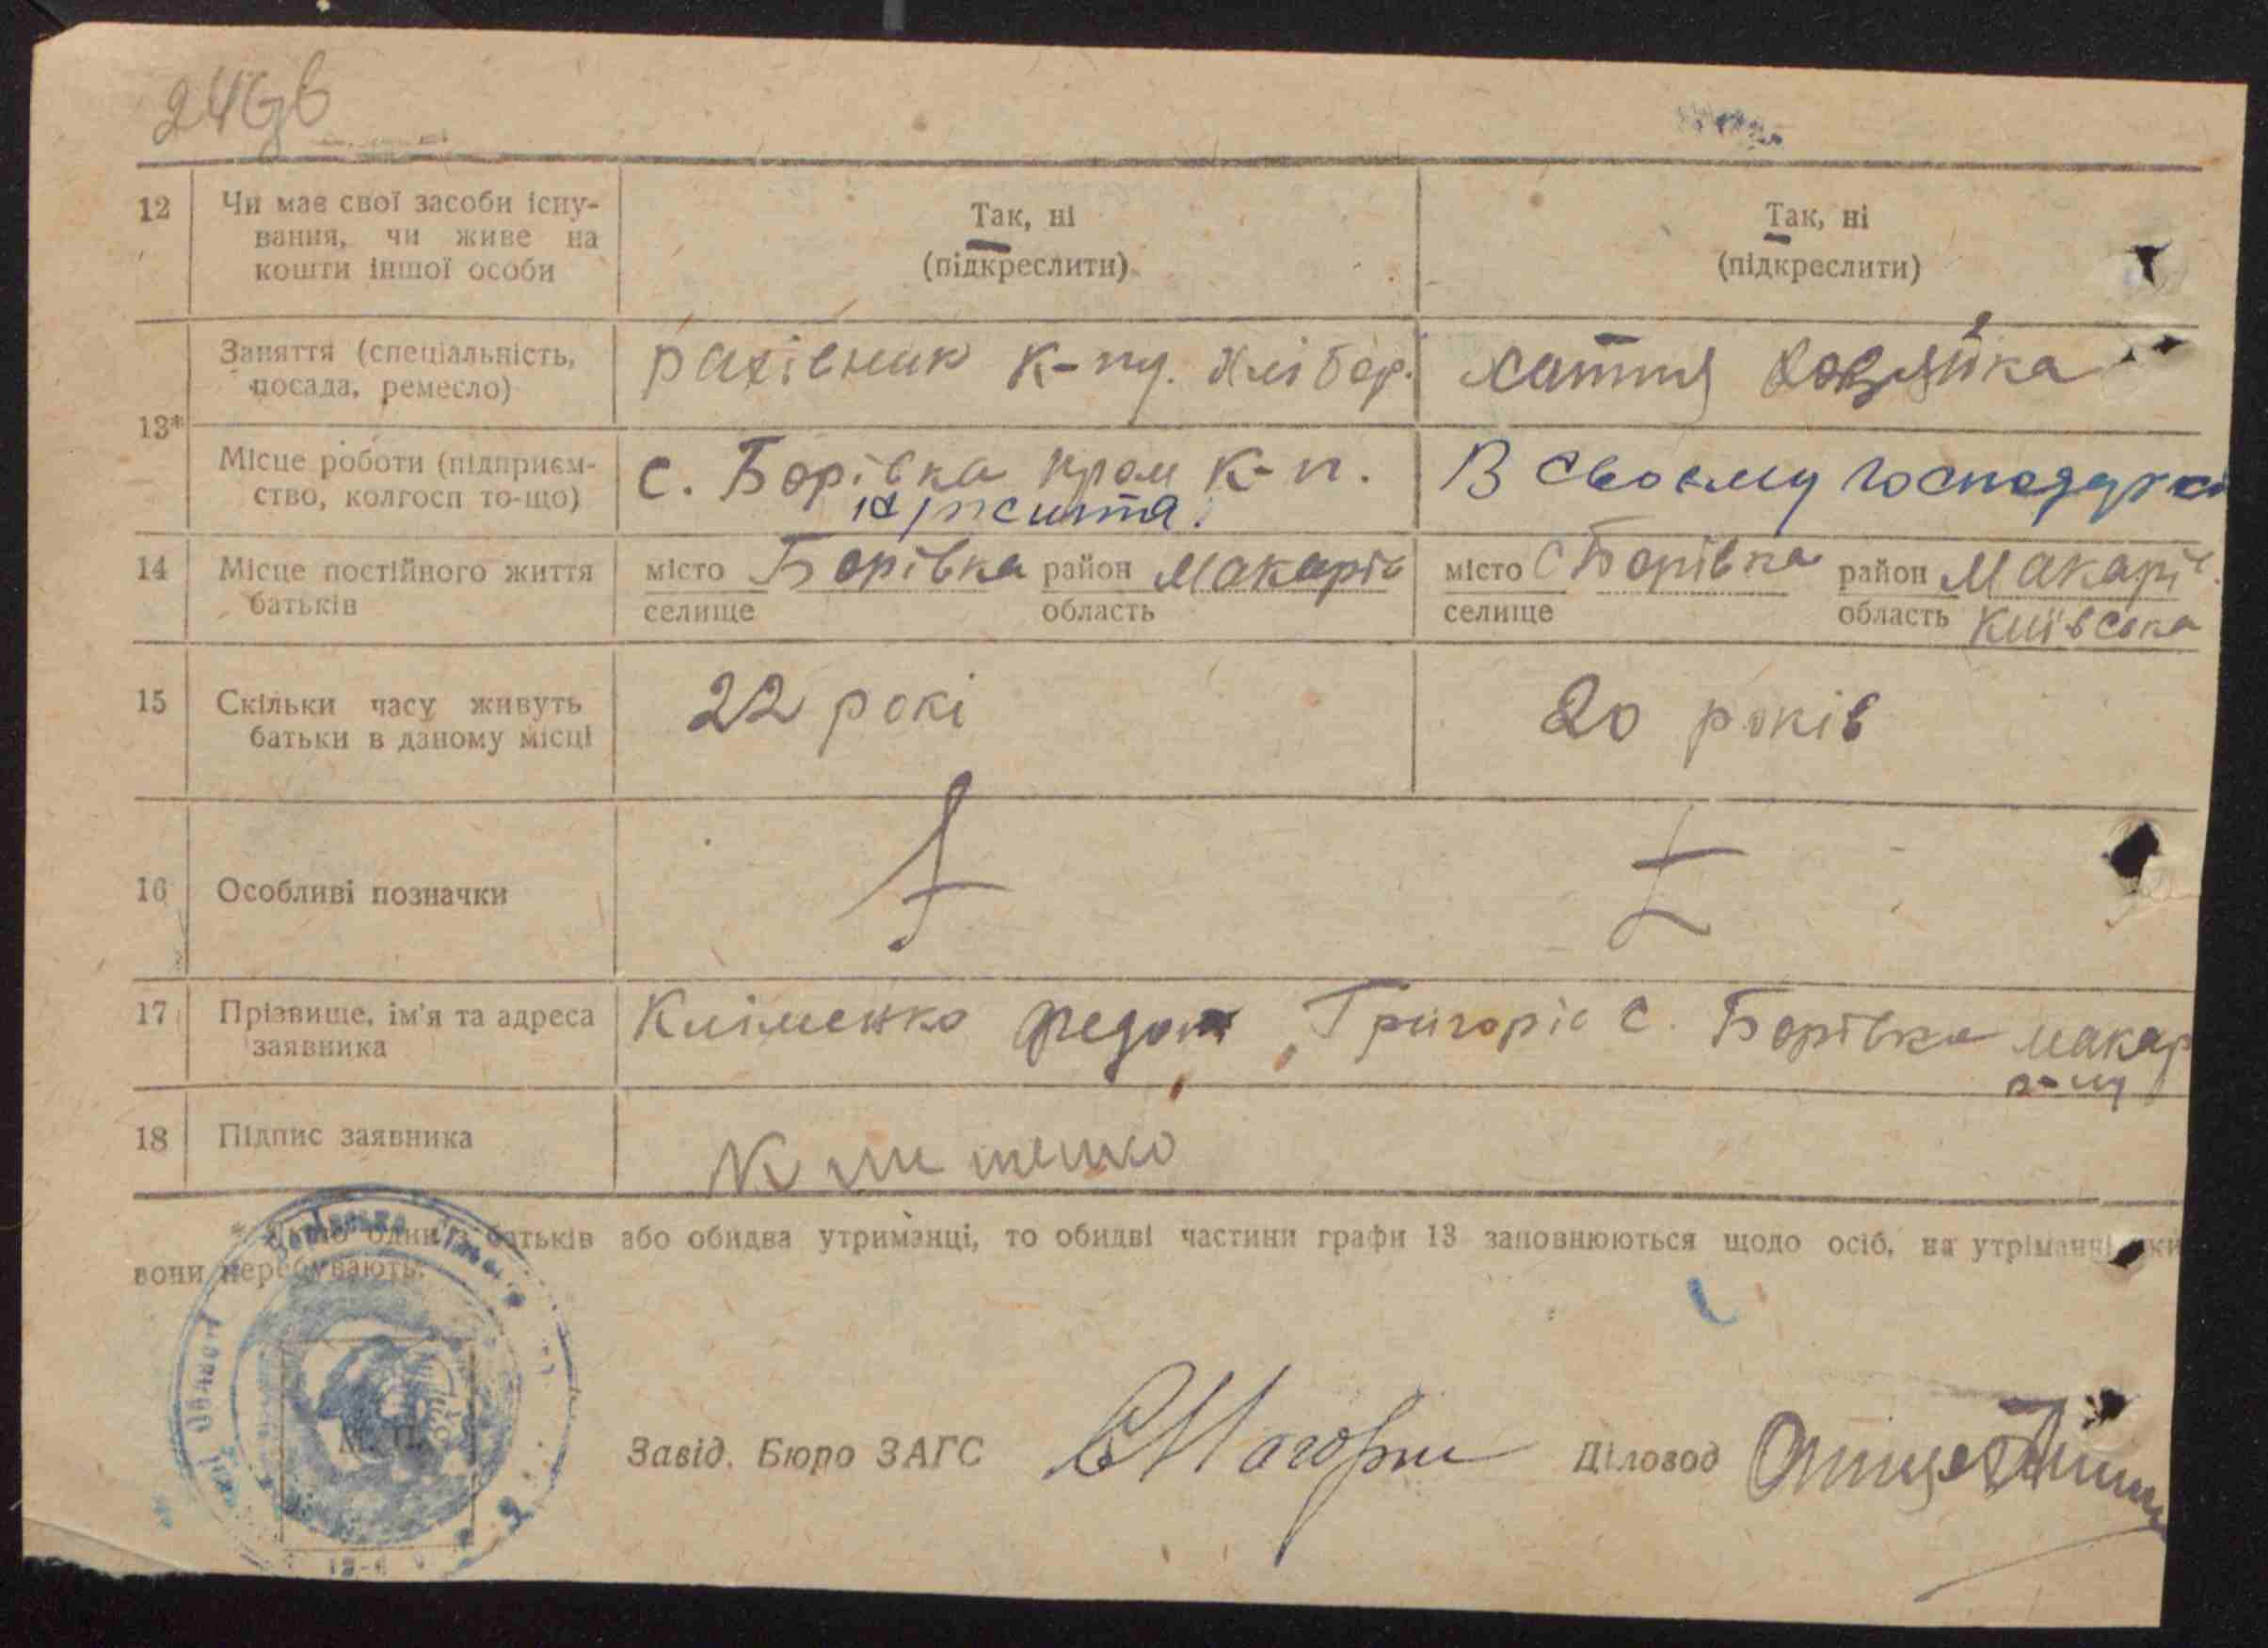 12 Чи має свої засоби існу-
вання, чи живе на
кошти іншої особи
Так, ні
(підкреслити)
Так, ні
(підкреслити)
13*
Заняття (спеціальність,
посада, ремесло)
рахівник к-пу. Хлібор.
хатня хозяйка
Місце роботи (підприєм-
ство, колгосп то-що)
с. Борівка пром к-п.
В своєму господарс
14 Місце постійного життя
батьків
місто Борівка район Макарів
селище область
місто с Борівка район Макарів.
селище область Київська
15 Скільки часу живуть
батьки в даному місці
22 рокі
20 років
16 Особливі позначки
17 Прізвище, ім'я та адреса
заявника
Кліменко Федот Григорів с. Борівка Макар
р-ну
18 Підпис заявника
Клименко
* Якщо один з батьків або обидва утриманці, то обидві частини графи 13 заповнюються щодо осіб, на утріманні яки
вони перебувають.
М. П.
Завід. Бюро ЗАГС
Діловод